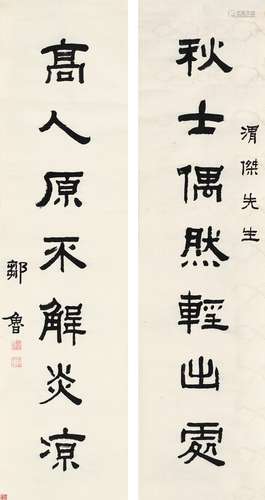 渭傑先生
秋士偶然輕出處
髙人原不解炎涼
鄒魯